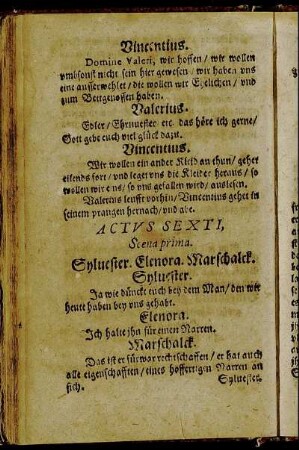 Vincentius.
Domine Valeri, wir hoffen / wir wollen
vmbsonst nicht sein hier gewesen / wir haben vns
eine ausserwehlet / die wollen wir Ehelichen / vnd
zum Bettgenossen haben.
Valerius.
Edler / Ehrnuester etc. das höre ich gerne /
Gott gebe euch viel glück dazu.
Vincentius.
Wir wollen ein ander Kleid an thun / gehet
eilends fort / vnd leget vns die Kleider heraus / so
wollen wir eins / so vns gefallen wird / auslesen.
Valerius leufft vorhin / Vincentius gehet in
seinem prangen hernach / vnd abe.
ACTVS SEXTI,
Scena prima.
Syluester. Elenora. Marschalck.
Syluester.
Ja wie düncket euch bey dem Man / den wir
heute haben bey vns gehabt.
Elenora.
Ich halte jhn für einen Narren.
Marschalck.
Das ist er fürwar rechtschaffen / er hat auch
alle eigenschafften / eines hoffertigen Narren an
sich.
Syluester.